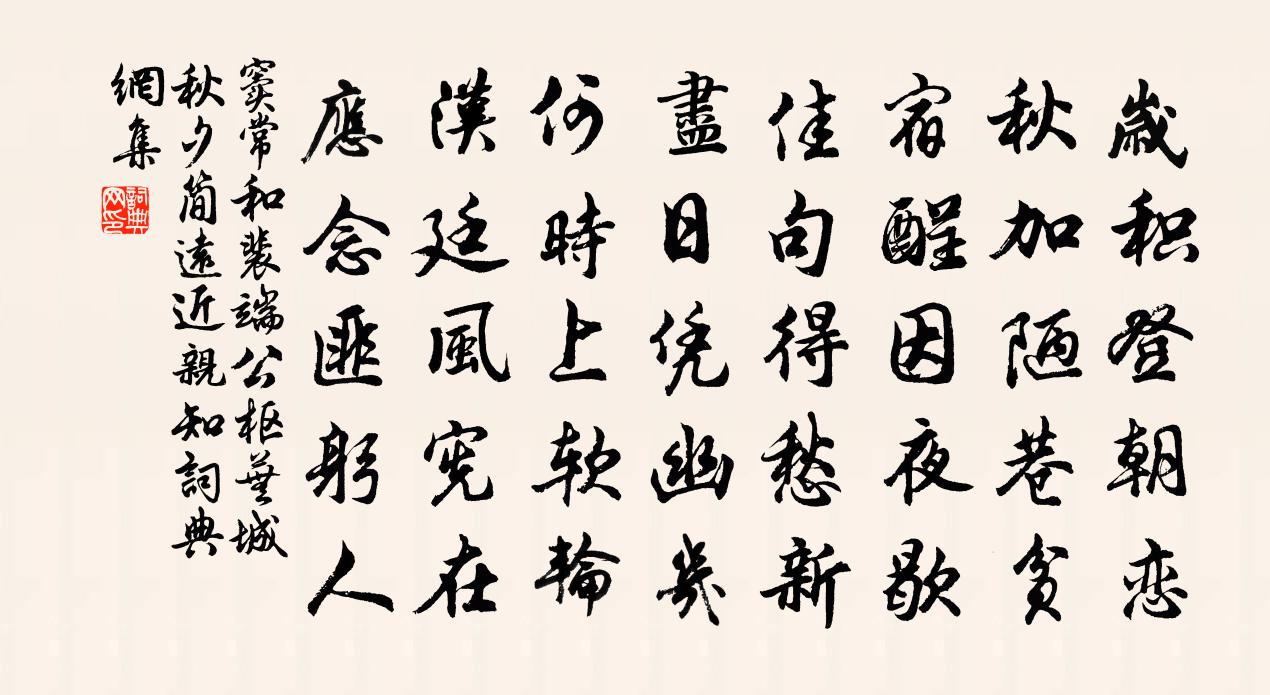 歲积登朝恋
秋加陋巷貧
宿酲因夜歇
佳句得愁新
盡日凭幽几
何時上软輪
漢廷風宪在
應念匪躬人
竇常和裴端公枢蕪城
秋夕簡遠近親知詞典
網集
詞典網印